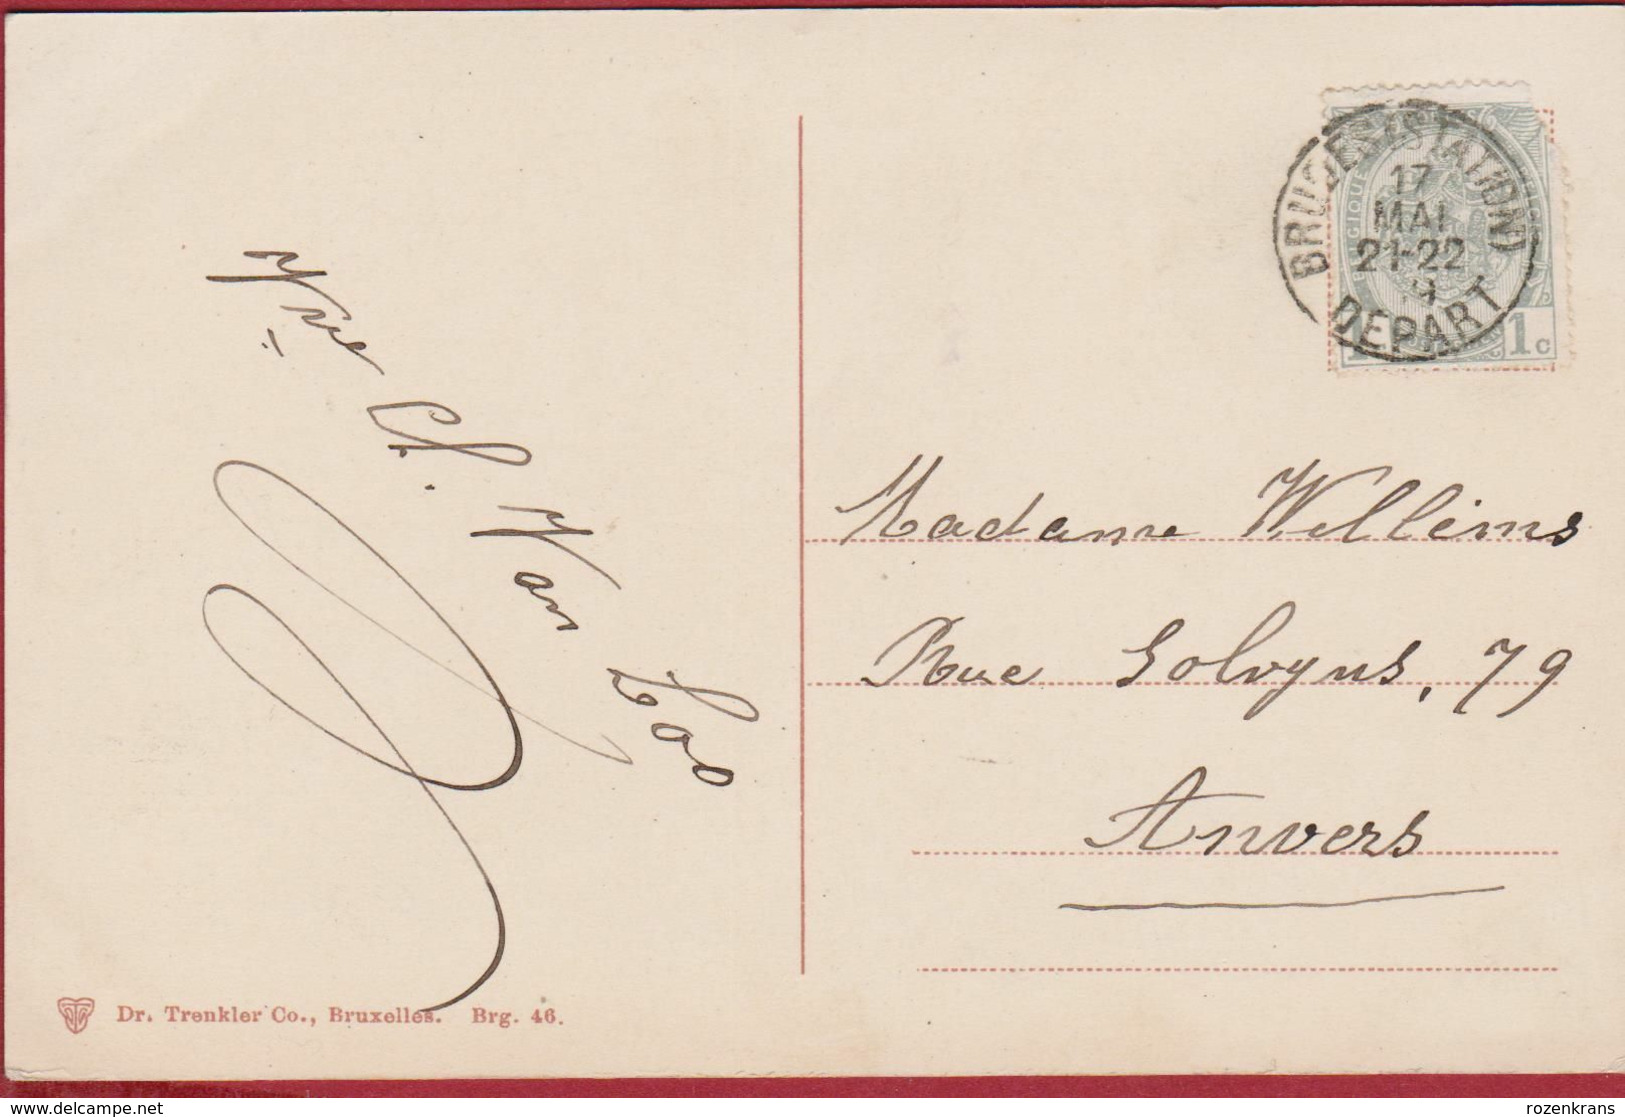 BRUGES (STATION)
17
MAI
21-22
DEPART
1c
Vve Ch. Van Loo
Madame Willems
Rue Solvyns, 79
Anvers
Dr. Trenkler Co., Bruxelles. Brg. 46.
www.delcampe.net
rozenkrans